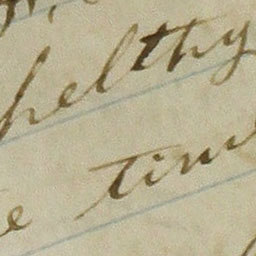 helthy
e time